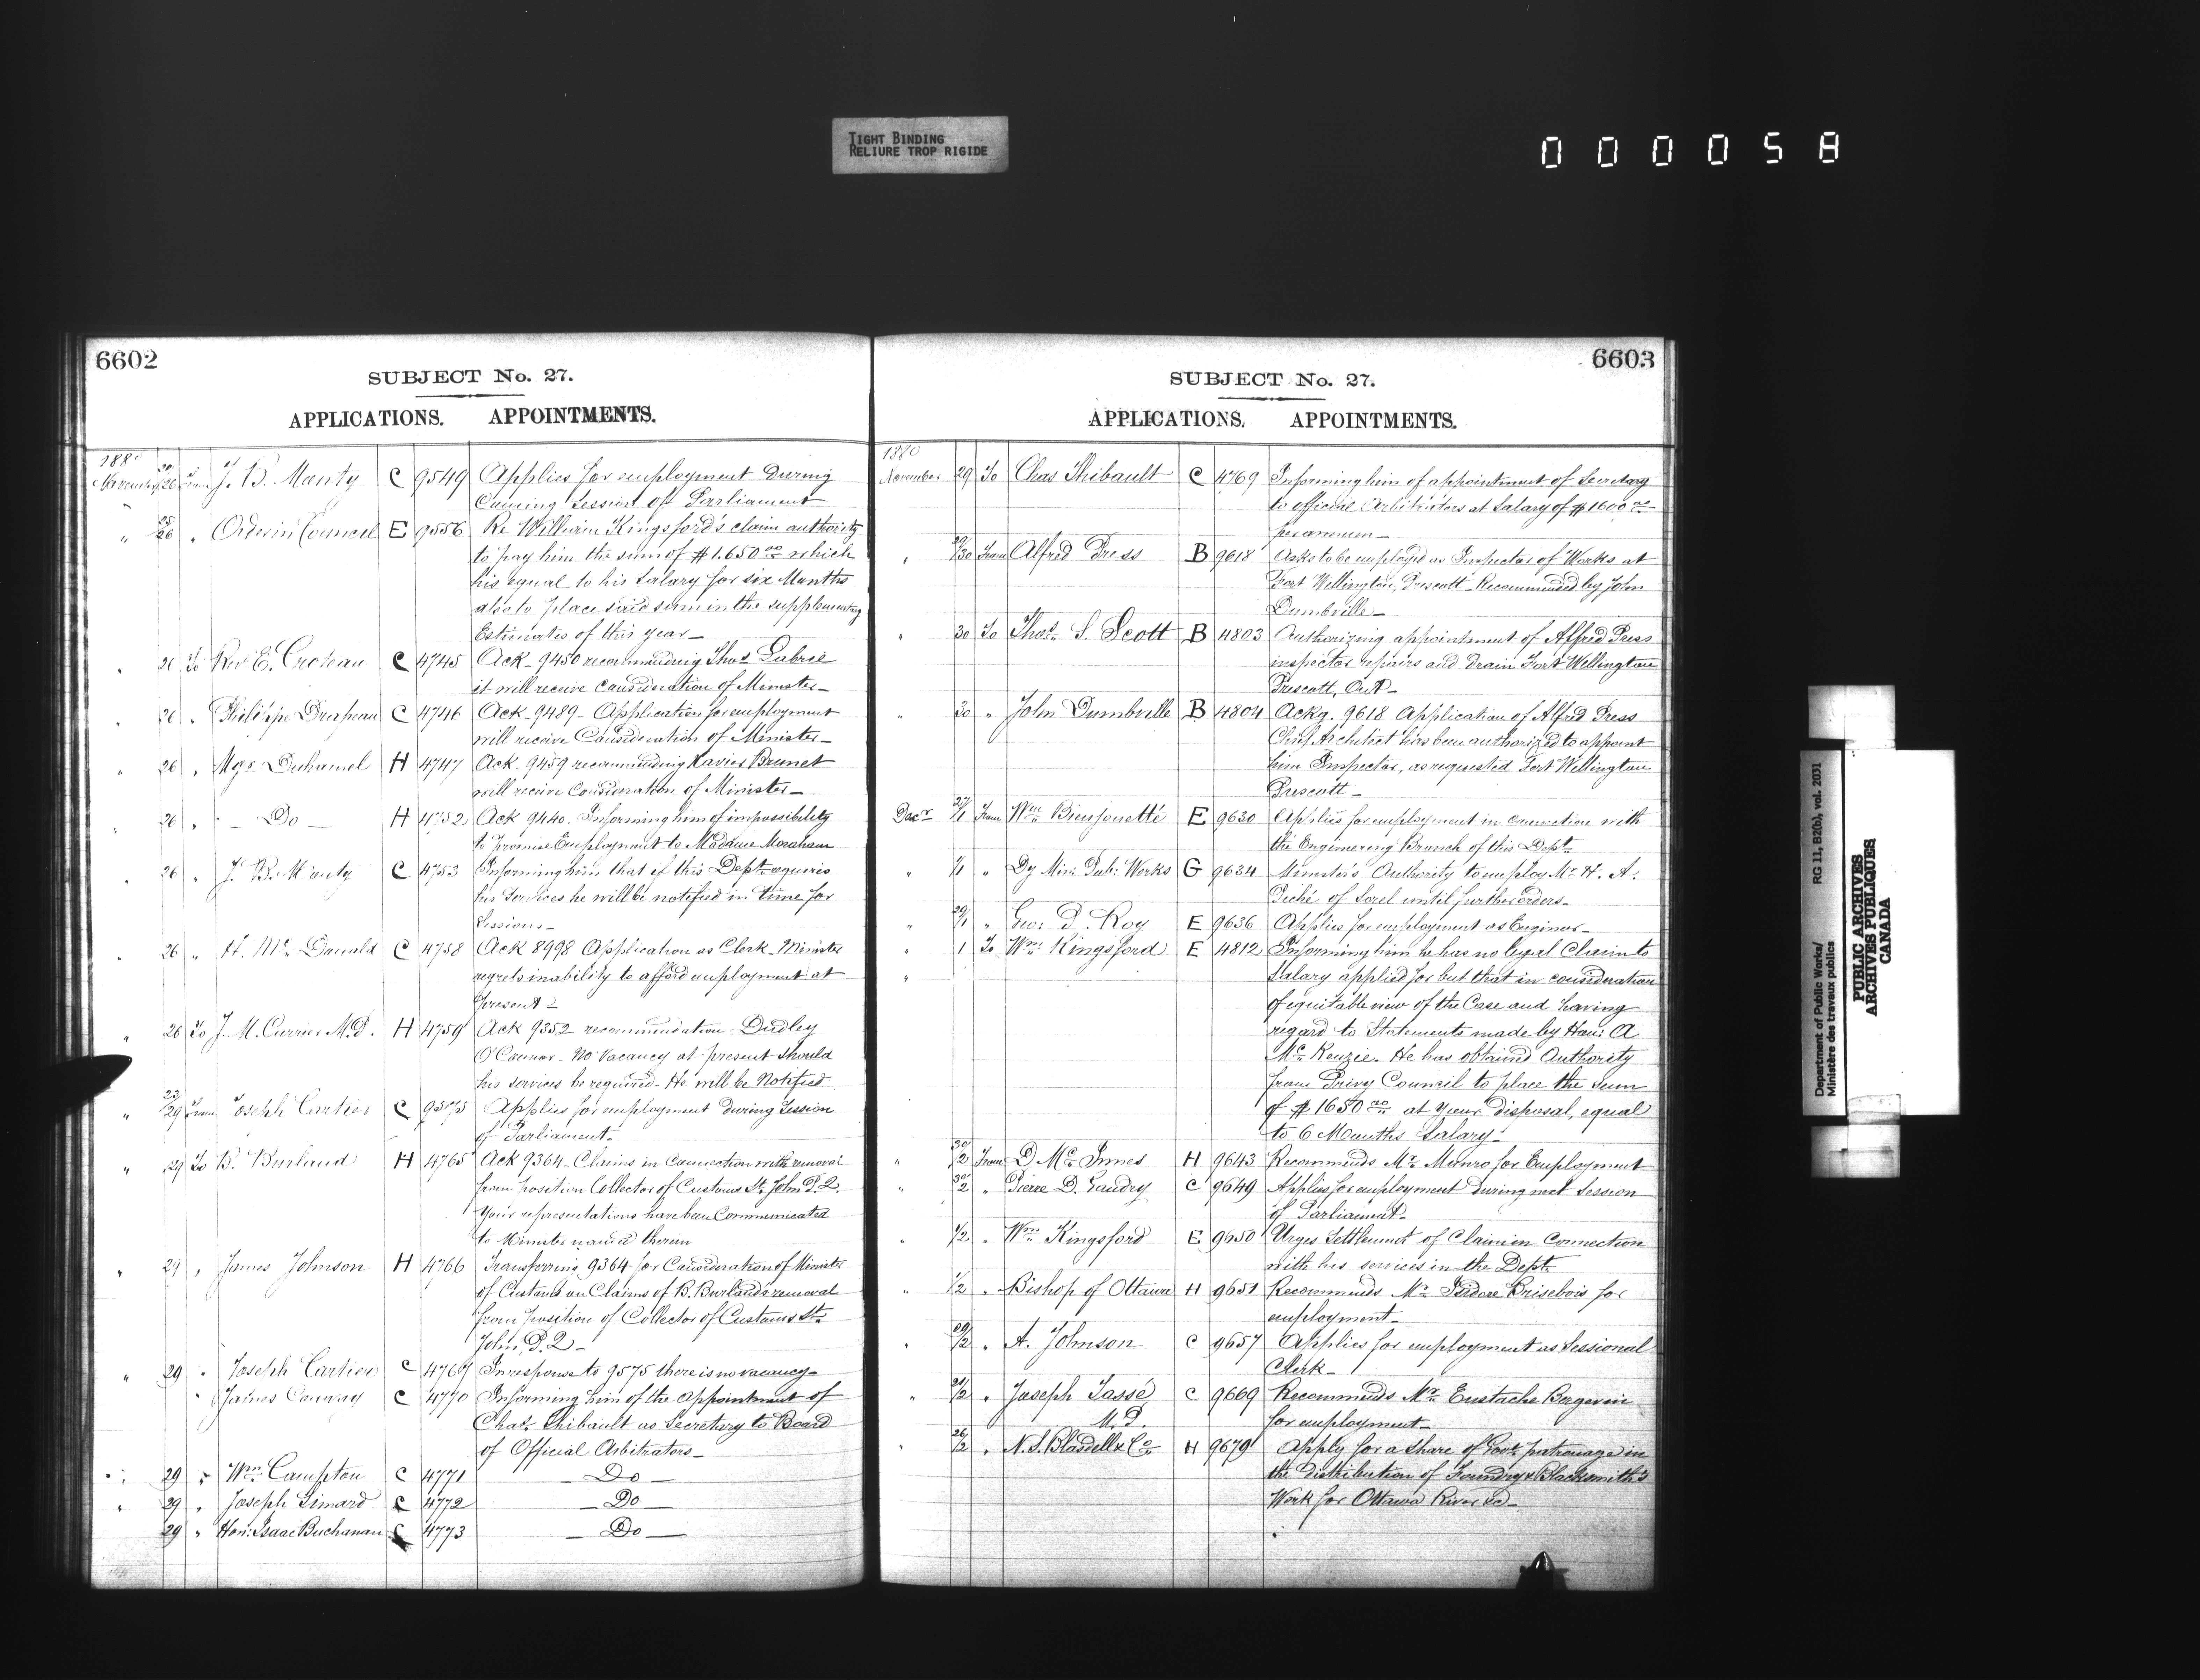 TIGHT BINDING
RELIURE TROP RIGIDE
000058
6602
SUBJECT No. 27.
APPLICATIONS. APPOINTMENTS.
1880
November 20/26 From J. B. Manty C 9549 Applies for employment during
Coming Session of Parliament
" 25/26 " Order in Council E 9556 Re William Kingsford's claim authority
to pay him the sum of $1.650.00 which
his equal to his Salary for six Months
also to place said sum in the supplementary
Estimates of this year_
" 26 To Rev E. Croteau C 4745 Ack_ 9450 recommending Thos
it will receive Consideration of Minister_
" 26 " Philippe Drapeau C 4746 Ack_ 9489_ Application for employment
will receive Consideration of Minister_
" 26 " Mgr Duhamel H 4747 Ack. 9459 recommending Xavier Brunet
will receive Consideration of Minister_
" 26 " _ Do _ H 4752 Ack 9440. Informing him of impossibility
to promise Employment to Madame
" 26 " J. B. Manty C 4753 Informing him that if this Dept. requires
his Services he will be notified in time for
Sessions_
" 26 " H. Mc Donald C 4758 Ack 8998 Application as Clerk_ Minister
regrets inability to afford employment at
present_
" 26 To J. M. Currier M.P. H 4759 Ack 9352 recommendation Dudley
O'Connor_ No Vacancy at present should
his services be required_ He will be Notified
" 23/29 From Joseph Cartier C 9575 Applies for employment during Session
of Parliament_
" 29 To B. Burland H 4765 Ack 9364_ Claims in Connection with removal
from position Collector of Customs St. John P.Q.
Your representations have been Communicated
to Minister named therein
" 29 " James Johnson H 4766 Transferring 9364 for Consideration of Minister
of Customs on Claims of B. Burland's removal
from position of Collector of Customs St.
John, P.Q_
" 29 " Joseph Cartier C 4767 In response to 9575 there is no vacancy_
" James Conway C 4770 Informing him of the Appointment of
Chas. Thibault as Secretary to Board
of Official Arbitrators_
" 29 " Wm. Compton C 4771 _ Do _
" 29 " Joseph Simard C 4772 _ Do _
29 " Hon: Isaac Buchanan C 4773 _ Do _
6603
SUBJECT No. 27.
APPLICATIONS. APPOINTMENTS.
1880
November 29 To Chas Thibault C 4769 Informing him of appointment of Secretary
to official Arbitrators at Salary of $1600.00
per annum_
" 29/30 From Alfred Press B 9618 Asks to be employed as Inspector of Works at
Fort Wellington, Prescott_ Recommended by John
Dumbrille_
" 30 To Thos. S. Scott B 4803 Authorizing appointment of Alfred Press
inspector repairs and drain Fort Wellington
Prescott, Ont_
" 30 " John Dumbrille B 4804 Ackg. 9618 Application of Alfred Press
Chief Architect has been authorized to appoint
him Inspector, as requested Fort Wellington
Prescott_
Decr 27/1 From Wm Bissonette E 9630 Applies for employment in connection with
the Engineering Branch of this Dept.
" 1/1 " Dy Min: Pub: Works G 9634 Minister's Authority to employ Mr. H. A.
Piché of Sorel until further orders_
" 29/1 " Geo: P. Roy E 9636 Applies for employment as Engineer_
" 1 To Wm Kingsford E 4812 Informing him he has no legal Claim to
" Salary applied for but that in consideration
of equitable view of the Case and having
regard to Statements made by Hon: A
McKenzie. He has obtained Authority
from Privy Council to place the sum
of $1650.00 at your disposal, equal
to 6 Months Salary_
" 30/2 From D. Mc Innes H 9643 Recommends Mr. Munro for Employment
" 30/2 " Pierre D. Landry C 9649 Applies for employment during next Session
of Parliament_
" 1/2 " Wm Kingsford E 9650 Urges Settlement of Claim in Connection
with his services in the Dept.
" 1/2 " Bishop of Ottawa H 9651 Recommends Mr. Isidore Brisebois for
employment_
" 29/2 " A. Johnson C 9657 Applies for employment as Sessional
Clerk_
" 21/2 " Joseph Tassé C 9669 Recommends Mr. Eustache Bergevin
M.P. for employment_
" 26/2 " N. S. Blasdell & Co H 9679 Apply for a share of Govt. patronage in
the distribution of Foundry & Blacksmith's
Work for Ottawa River &c_
Department of Public Works/
Ministère des travaux publics
RG 11, B2(b), vol. 2031
PUBLIC ARCHIVES
ARCHIVES PUBLIQUES
CANADA